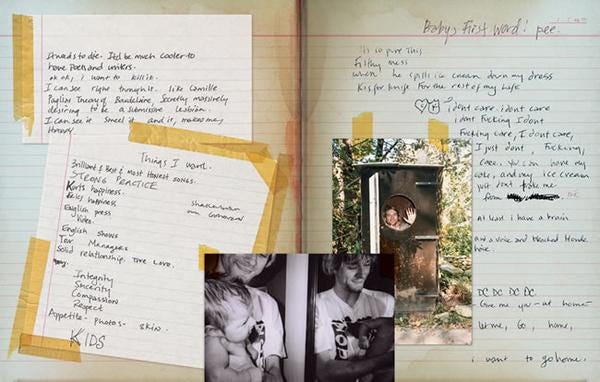 have Poets and writers.
ok ok, i want to kill it.
I can see right through it. Like Camille
Paglias Theory of Baudelaire, Secretly massively
desiring to be a submissive lesbian.
I can see it smell it and it, makes me,
Things I want.
Brilliant & Best & most Honest songs.
STRONG PRACTICE
Kurts happiness.
happiness
English press
Video.
English shows
Tour Managers
Solid relationship. True Love.
Integrity
Sincerity
Compassion
Respect
Appetite - photos - skin.
KIDS
Baby's First Word: pee.
Its so pure This
Filthy mess
when he spills ice cream down my dress
For the rest of my life
i dont care i dont care
i dont Fucking I dont
Fucking care, I dont care,
I just dont, Fucking,
care. You can have my
cake, and my ice cream
just dont
from
At least i have a brain
and a voice and bleached blonde
DC DC DC DC
Give me you - at home -
let me, Go, home,
i want to go home.